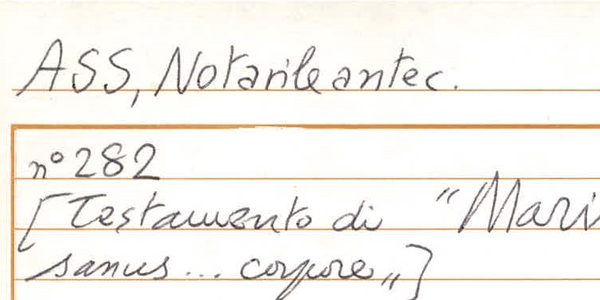 ASS, Notarile antec.
n° 282
[Testamento di "Mari
sanus... corpore„]